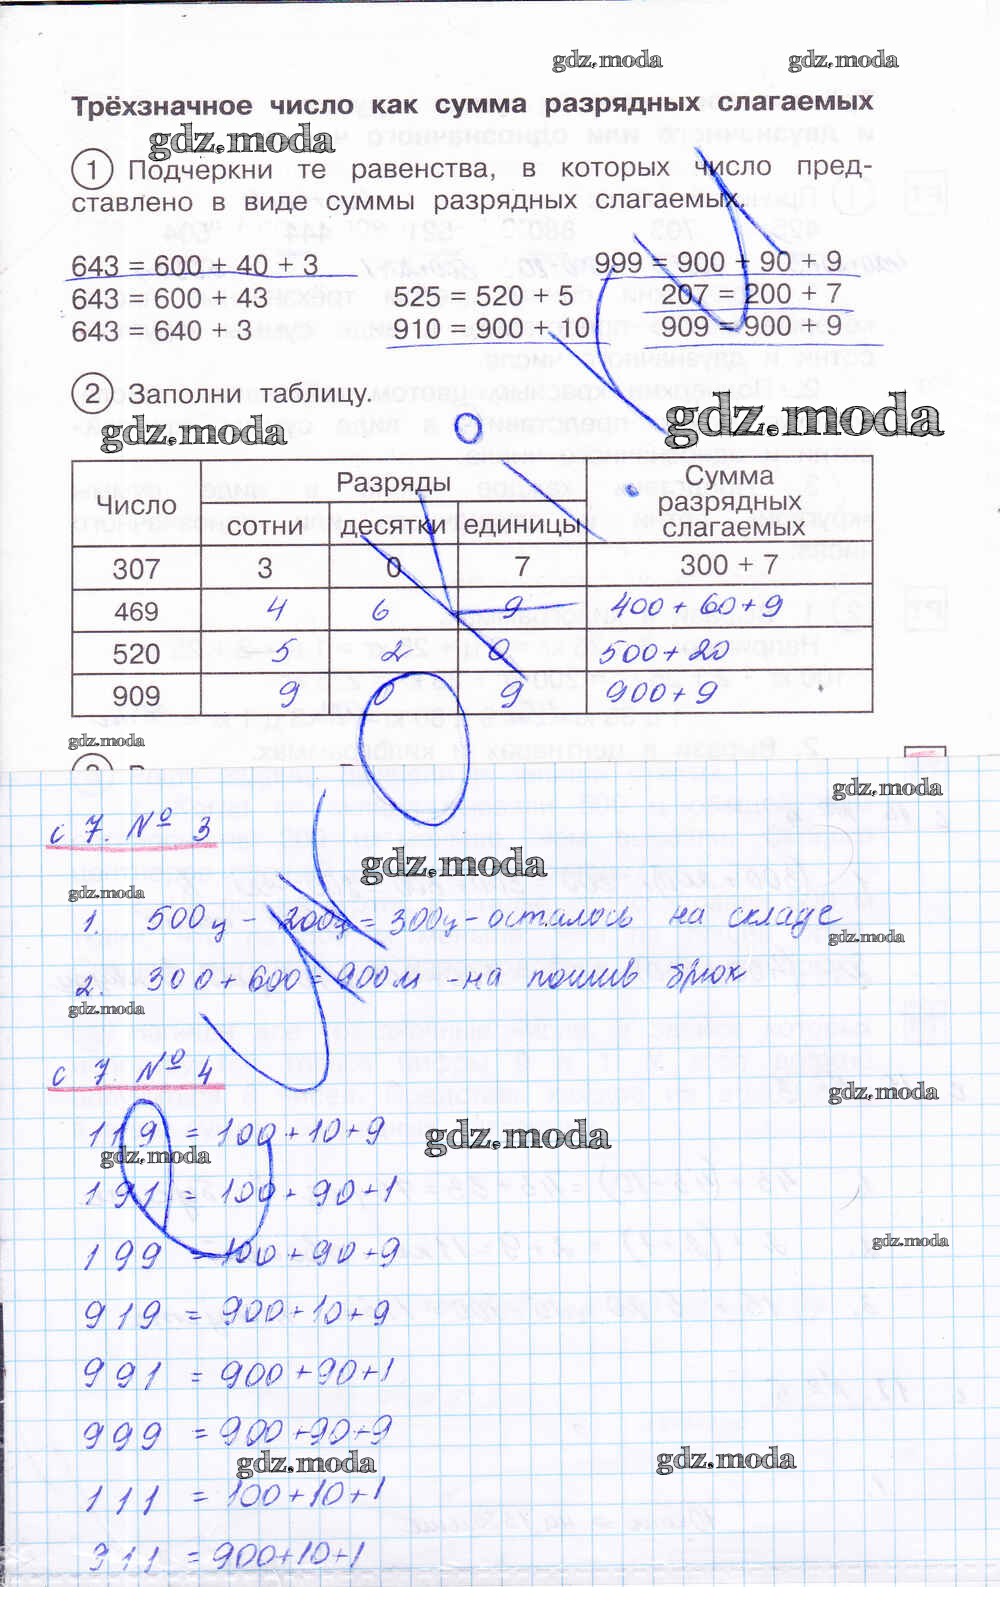 gdz.moda gdz.moda
Трёхзначное число как сумма разрядных слагаемых
gdz.moda
1 Подчеркни те равенства, в которых число пред-
ставлено в виде суммы разрядных слагаемых.
643 = 600 + 40 + 3 999 = 900 + 90 + 9
643 = 600 + 43 525 = 520 + 5 207 = 200 + 7
643 = 640 + 3 910 = 900 + 10 909 = 900 + 9
2 Заполни таблицу.
gdz.moda gdz.moda
Число Разряды Сумма разрядных слагаемых
сотни десятки единицы
307 3 0 7 300 + 7
469 4 6 9 400 + 60 + 9
520 5 2 0 500 + 20
909 9 0 9 900 + 9
gdz.moda
gdz.moda
с 7. № 3
gdz.moda
gdz.moda
1. 500ц - 200ц = 300ц - осталось на складе
gdz.moda
2. 300 + 600 = 900м - на пошив брюк
gdz.moda
с 7. № 4
gdz.moda
119 = 100 + 10 + 9
gdz.moda
gdz.moda
191 = 100 + 90 + 1
gdz.moda
199 = 100 + 90 + 9
919 = 900 + 10 + 9
991 = 900 + 90 + 1
999 = 900 + 90 + 9
gdz.moda gdz.moda
111 = 100 + 10 + 1
911 = 900 + 10 + 1